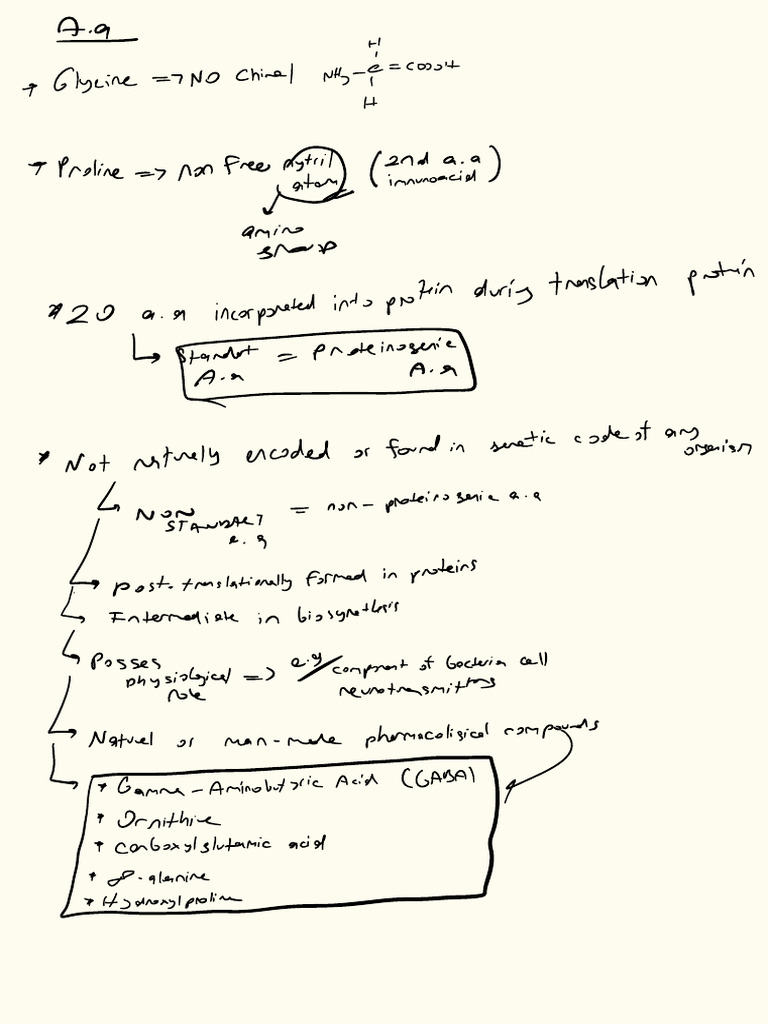 A.a
→ Glycine => NO chiral NH2 - C = COOH
H
H
→ Proline => non free nytril atom (2nd a.a immunoacid)
amino group
* 20 a.a incorporated into protein during translation protein
Standart A.a = Proteinogenic A.a
* Not naturely encoded or found in genetic code of any organism
NON STANDART a.a = non-proteinogenic a.a
post-translationally formed in proteins
Intermediate in biosynthesis
Posses physiological role => e.g component of bacteria cell
neurotransmittors
Naturel or man-made pharmacoligical compounds
* Gamma-Aminobutyric Acid (GABA)
* Ornithine
* Carboxylglutamic acid
* β-alanine
* Hydroxylproline